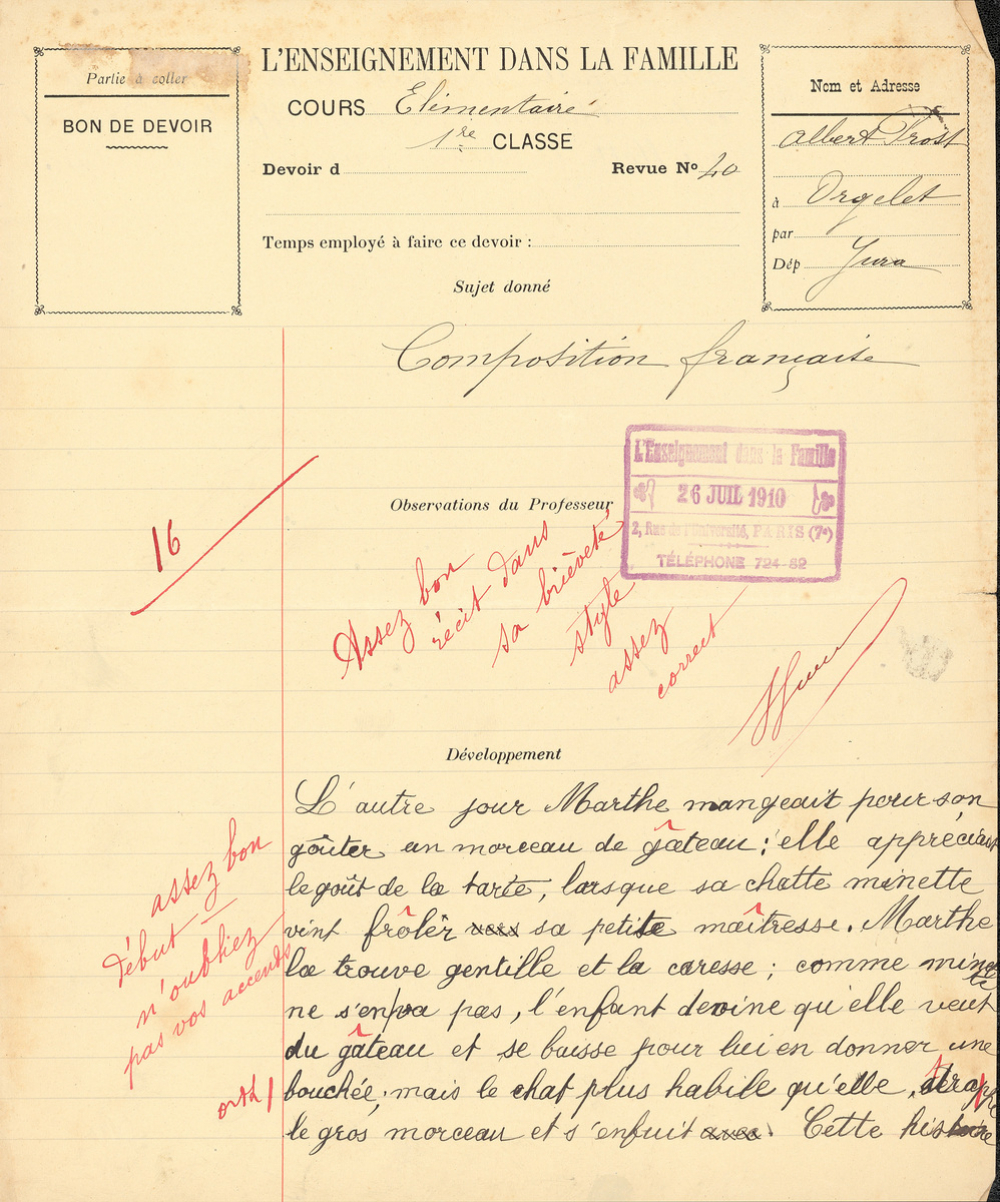 Partie à coller
BON DE DEVOIR
L'ENSEIGNEMENT DANS LA FAMILLE
COURS Elémentaire
1re CLASSE
Devoir d
Revue No 40
Temps employé à faire ce devoir :
Sujet donné
Nom et Adresse
Albert Prost
à Orgelet
par
Dép Jura
Composition française
L'Enseignement dans la Famille
26 JUIL 1910
2, Rue de l'Université, PARIS (7e)
TÉLÉPHONE 724-82
Observations du Professeur
16
Assez bon
récit dans
sa brièveté
style
assez
correct
Développement
L'autre jour Marthe mangeait pour son
goûter un morceau de gâteau; elle appréciait
le goût de la tarte, lorsque sa chatte minette
vint frôler sa petite maîtresse. Marthe
la trouve gentille et la caresse; comme minette
ne s'en/va pas, l'enfant devine qu'elle veut
du gâteau et se baisse pour lui en donner une
bouchée; mais le chat plus habile qu'elle, attrape
le gros morceau et s'enfuit. Cette histoire
assez bon
début
n'oubliez
pas vos accents
orth 1